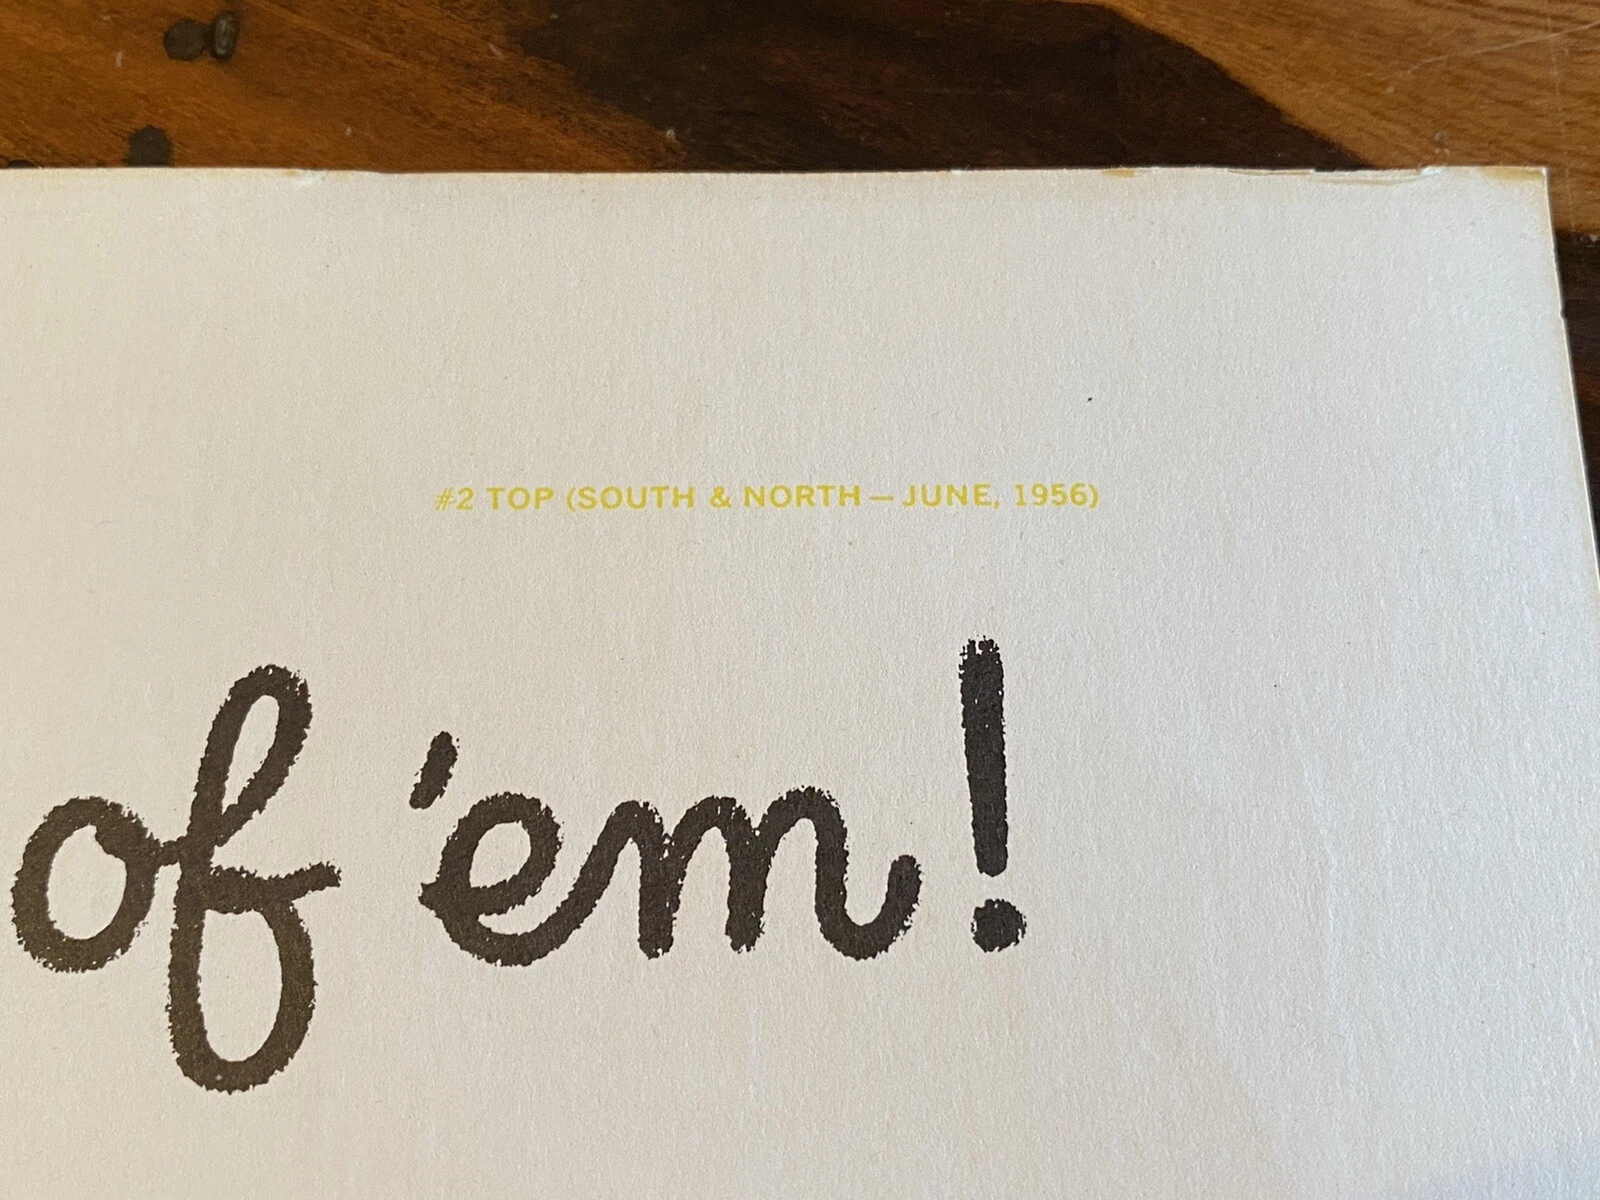 #2 TOP (SOUTH & NORTH — JUNE, 1956)
of 'em!